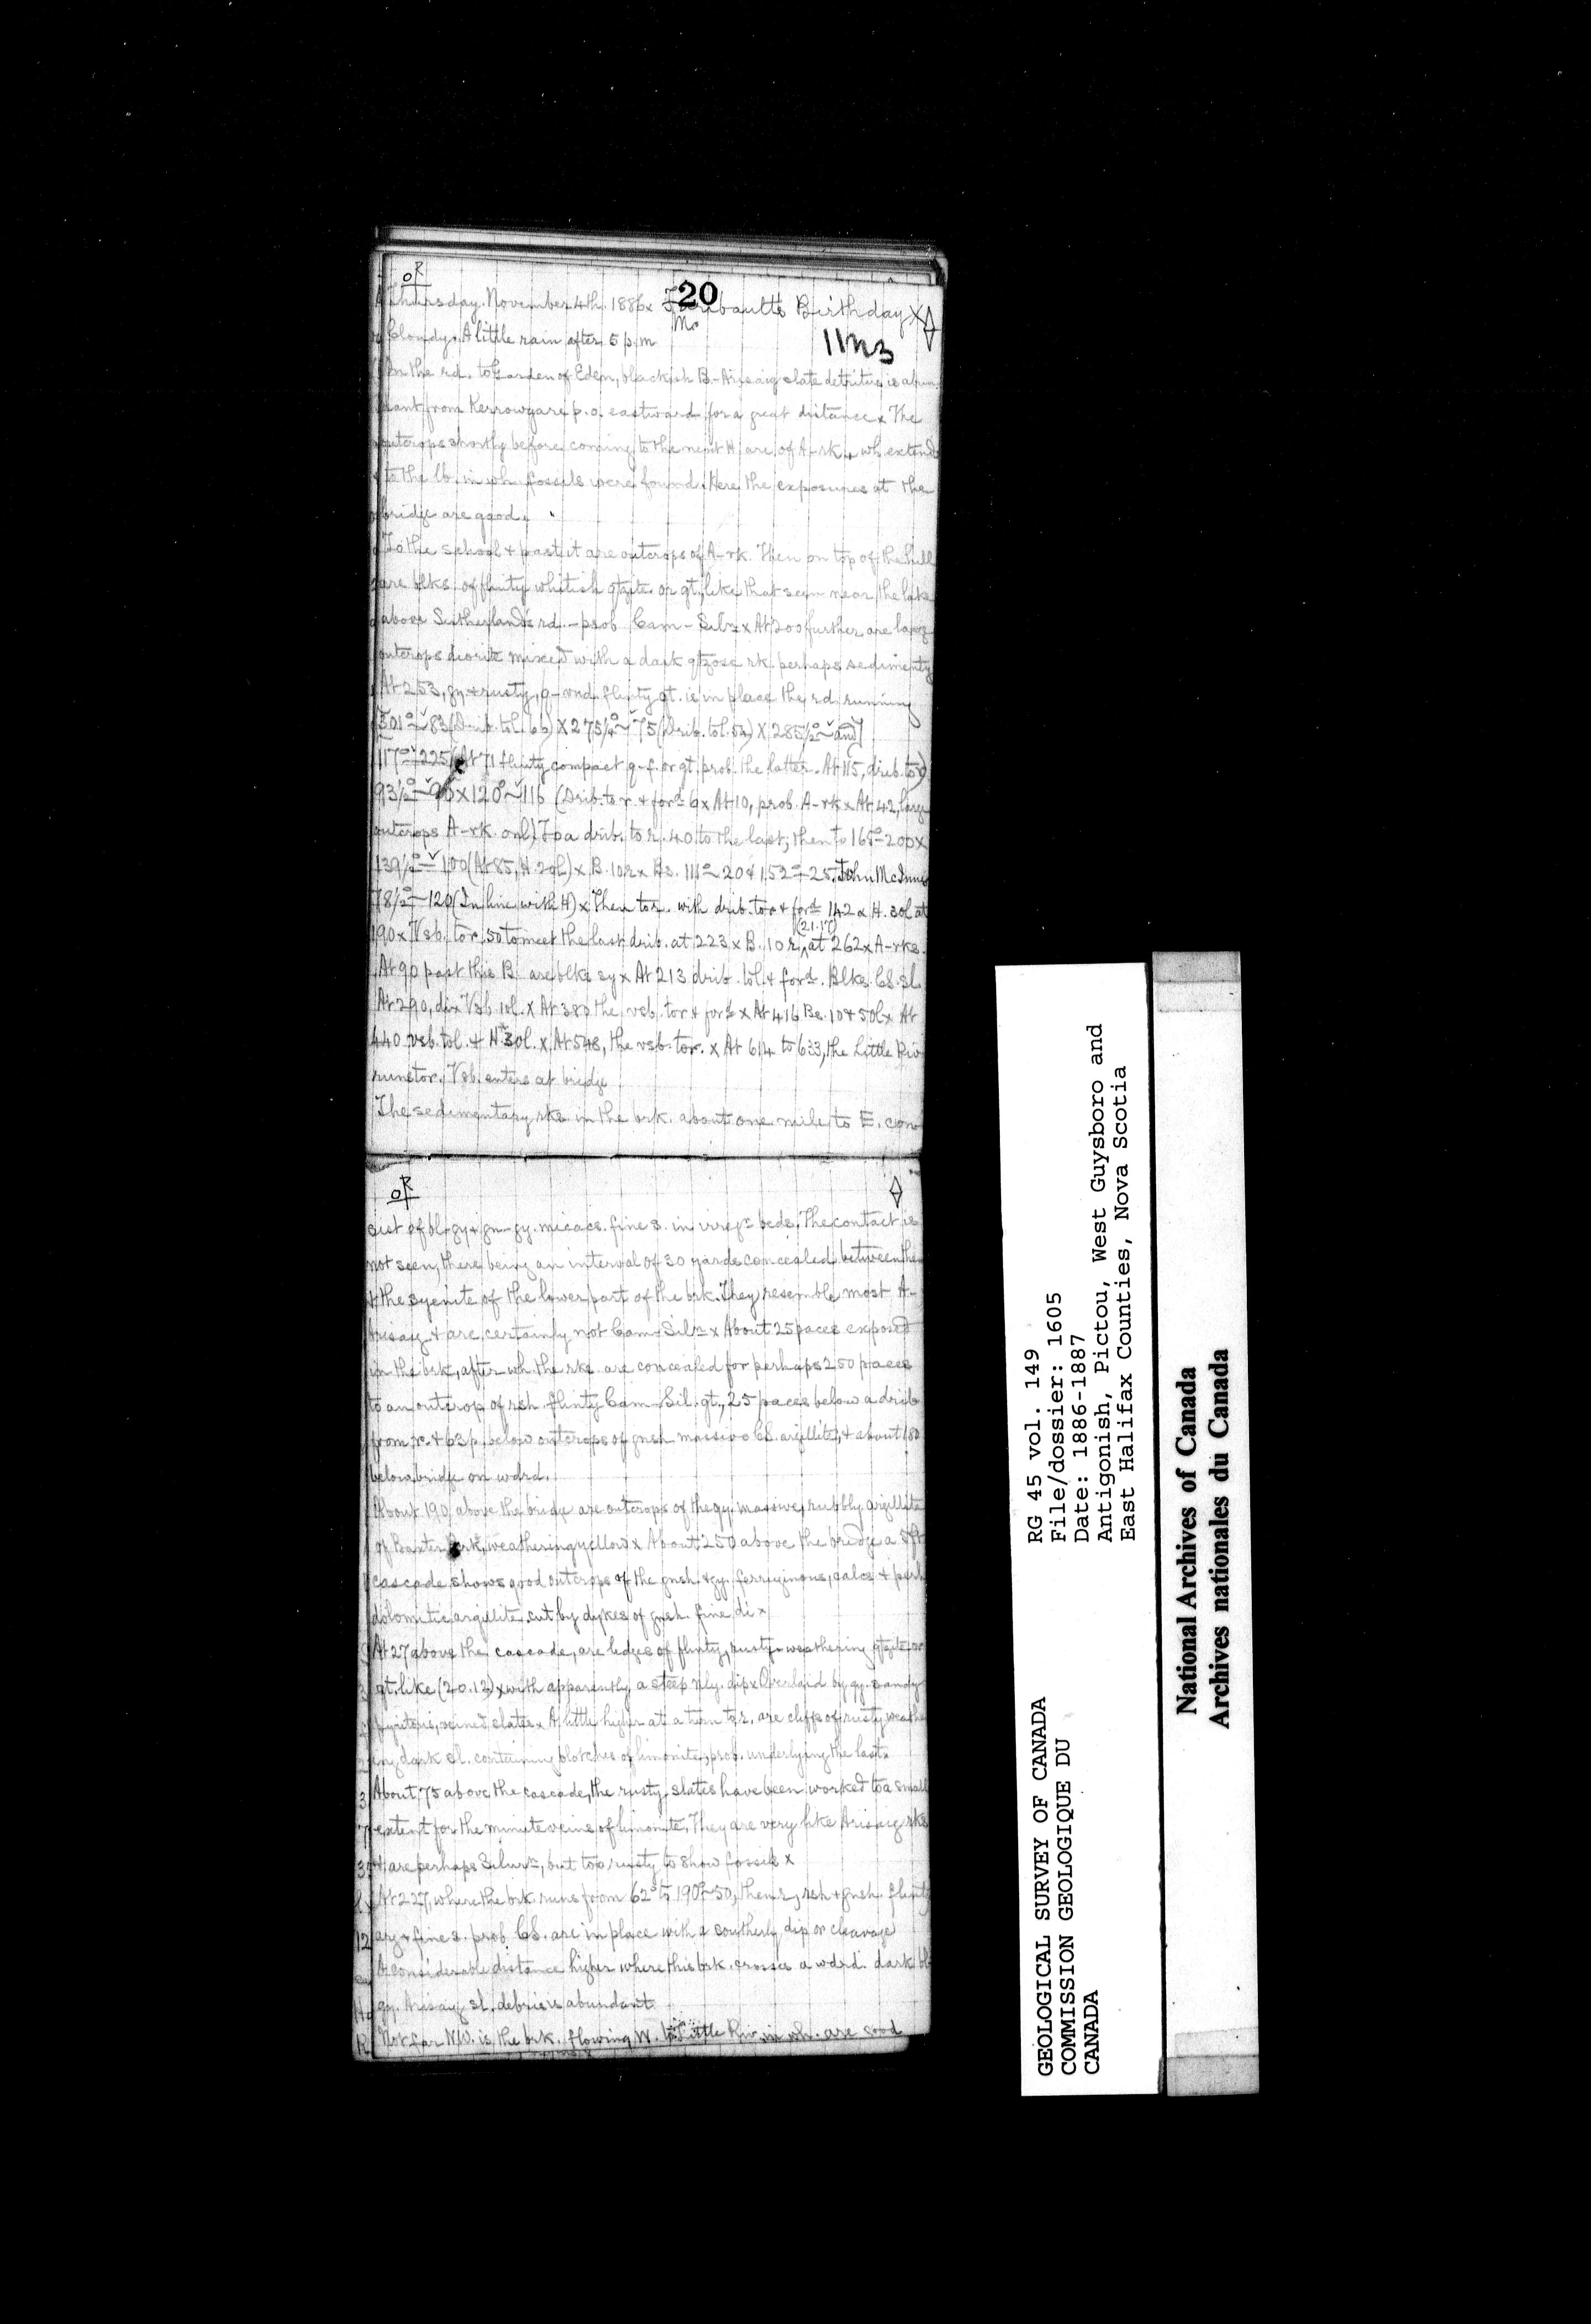 20
Thursday. November 4th. 1886x Faribault's Birthday X
Mr
Cloudy. A little rain after 5 p.m.
11M3
In the rd. to Garden of Eden, blackish B.-Arisaig slate detritus is abun-
dant from Kerrowgare p.o. eastward for a great distance x The
outcrops shortly before coming to the next H. are of A-rk., wh. extend
to the lb. in wh. fossils were found. Here the exposures at the
bridge are good.
To the school + past it are outcrops of A-rk. Then on top of the hill
are blks. of flinty whitish qtzite. or qt., like that seen near the lake
above Sutherland's rd. - prob. Cam-Siln x At 200 further are large
outcrops diorite mixed with a dark qtzose rk. perhaps sedimenty
At 253, gy. + rusty, q-vnd. flinty qt. is in place the rd. running
301° ~ 83 (Drib. to l. 66) X 275¼° ~ 75 (Drib. to l. 52) X 285½° ~ and
117° ~ 225 (At 71 flinty compact q-f. or qt. prob. the latter. At 115, drib. to r)
93½° ~ 90 x 120° ~ 116 (Drib. to r. + ford 6 x At 10, prob. A-rk x At 42, large
outcrops A-rk. only) To a drib. to r. 40 to the last; then to 168° ~ 200 x
139½° ~ 100 (At 85, H. 20l) x B. 10r x Bs. 111° ~ 20 & 152° ~ 25. John McInnes
78½° ~ 120 (In line with H) x Then to r. with drib. to r + ford 142 x H. 30l at
190 x Vsb. to r. 50 to meet the last drib. at 223 x B. 10 r, at 262 x A-rks.
(21.17)
At 90 past this B. are blks sy x At 213 drib. to l. + ford. Blks. CS. sl.
At 290, di x Vsb. 10l. X At 383 the vsb. to r + ford x At 416 Bs. 10 + 50l x At
440 vsb. to l. + H. 30l. x At 548, the vsb. to r. x At 614 to 633, the Little Riv.
runs to r. Vsb. enters at bridge
The sedimentary rks. in the brk. about one mile to E. con-
sist of bl-gy + gn-gy. micacs. fine s. in irregr beds. The contact is
not seen, there being an interval of 30 yards concealed between them
+ the syenite of the lower part of the brk. They resemble most A-
Arisaig + are certainly not Cam-Siln x About 25 paces exposed
in the brk., after wh. the rks. are concealed for perhaps 250 paces
to an outcrop of rsh. flinty Cam-Sil. qt., 25 paces below a drib
from r. + 63 p. below outcrops of gnsh massive CS. argillites, + about 180
below bridge on wdrd.
About 190 above the bridge are outcrops of the gy. massive, rubbly argillite
of Baxter Brk., weathering yellow x About 250 above the bridge a 5ft
cascade shows good outcrops of the gnsh. + gy. ferruginous, calcs + perh
dolomitic argillite cut by dykes of gnsh. fine di x
At 27 above the cascade, are ledges of flinty, rusty-weathering qtzite. or
qt. like (20.12) x with apparently a steep nly. dip x Overlaid by gy. sandy
pyritous, veined slates x A little higher at a turn to r. are cliffs of rusty weather-
ing dark sl. containing blotches of limonite, prob. underlying the last.
About 75 above the cascade, the rusty slates have been worked to a small
extent for the minute veins of limonite. They are very like Arisaig rks
+ are perhaps Silurn, but too rusty to show fossils x
At 227, where the brk. runs from 62° to 190° ~ 50, then r, rsh + gnsh. flinty
arg + fine s. prob. CS. are in place with a southerly dip or cleavage
A considerable distance higher where this brk. crosses a wdrd. dark bl-
gy. Arisaig sl. debris is abundant
Not far NW. is the brk. flowing W. to Little Riv. in wh. are good
RG 45 vol. 149
File/dossier: 1605
Date: 1886-1887
Antigonish, Pictou, West Guysboro and
East Halifax Counties, Nova Scotia
GEOLOGICAL SURVEY OF CANADA
COMMISSION GEOLOGIQUE DU
CANADA
National Archives of Canada
Archives nationales du Canada